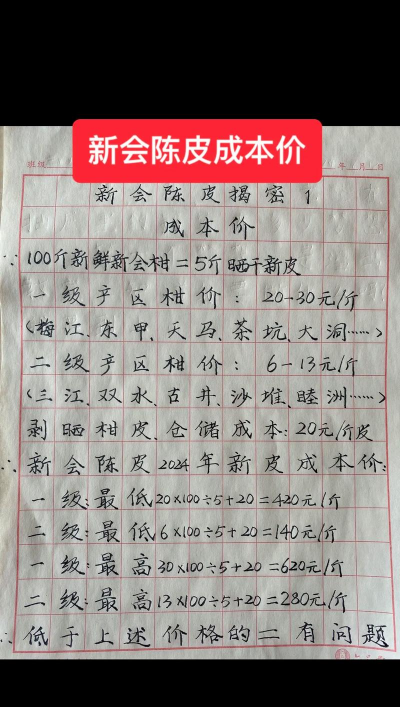 新会陈皮成本价
班级
年 月 日
新会陈皮揭密1
成本价
∵100斤新鲜新会柑=5斤晒干新皮
一级产区柑价:20-30元/斤
(梅江、东甲、天马、茶坑、大洞……)
二级产区柑价:6-13元/斤
(三江、双水、古井、沙堆、睦洲……)
剥晒柑皮、仓储成本:20元/斤皮
∴新会陈皮2024年新皮成本价:
一级:最低20×100÷5+20=420元/斤
二级:最低6×100÷5+20=140元/斤
一级:最高30×100÷5+20=620元/斤
二级:最高13×100÷5+20=280元/斤
∴低于上述价格的=有问题